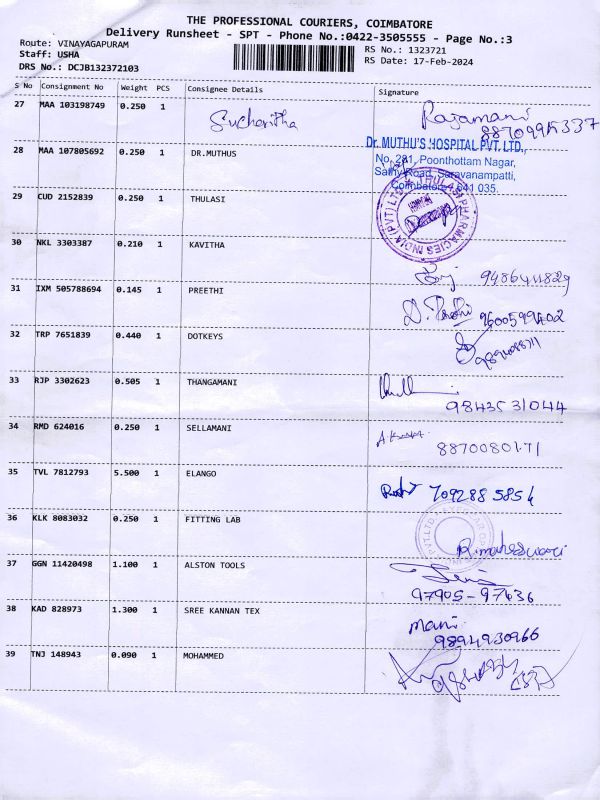 THE PROFESSIONAL COURIERS, COIMBATORE
Delivery Runsheet - SPT - Phone No.:0422-3505555 - Page No.:3
Route: VINAYAGAPURAM
Staff: USHA
DRS No.: DCJB132372103
RS No.: 1323721
RS Date: 17-Feb-2024
S No Consignment No Weight PCS Consignee Details Signature
27 MAA 103198749 0.250 1 Sucharitha Rajamani
28 MAA 107805692 0.250 1 DR.MUTHUS
Dr. MUTHU'S HOSPITAL PVT. LTD.,
No. 281, Poonthottam Nagar,
Sathy Road, Saravanampatti,
Coimbatore - 641 035.
29 CUD 2152839 0.250 1 THULASI
THULASI PHARMACIES INDIA (PVT) LTD
30 NKL 3303387 0.210 1 KAVITHA
31 IXM 505788694 0.145 1 PREETHI
32 TRP 7651839 0.440 1 DOTKEYS
33 RJP 3302623 0.505 1 THANGAMANI
9843531044
34 RMD 624016 0.250 1 SELLAMANI
8870080171
35 TVL 7812793 5.500 1 ELANGO
7092885854
36 KLK 8083032 0.250 1 FITTING LAB
R.maheswari
37 GGN 11420498 1.100 1 ALSTON TOOLS
97905-97636
38 KAD 828973 1.300 1 SREE KANNAN TEX
mani
9894930966
39 TNJ 148943 0.090 1 MOHAMMED